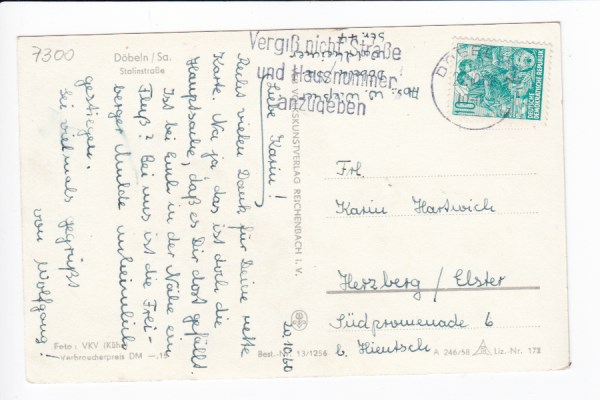 7300
Döbeln / Sa.
Stalinstraße
Vergiß nicht Straße
und Hausnummer
anzugeben
DEUTSCHE
DEMOKRATISCHE REPUBLIK
10
Liebe Karin!
Recht vielen Dank für Deine nette
Karte. Na ja, das ist doch die
Hauptsache, daß es Dir dort gefällt.
Ist bei Euch in der Nähe ein
Fluß? Bei uns ist die Frei-
berger Mulde unheimlich
gestiegen.
Sei vielmals gegrüßt
von Wolfgang!
20.10.60
VOLKSKUNSTVERLAG REICHENBACH i. V.
Frl.
Karin Hartwich
Herzberg / Elster
Südpromenade 6
b. Hientzsch
Foto: VKV
Verbraucherpreis DM —,15
Best.-Nr. 13/1256
A 246/58
Liz.-Nr. 172